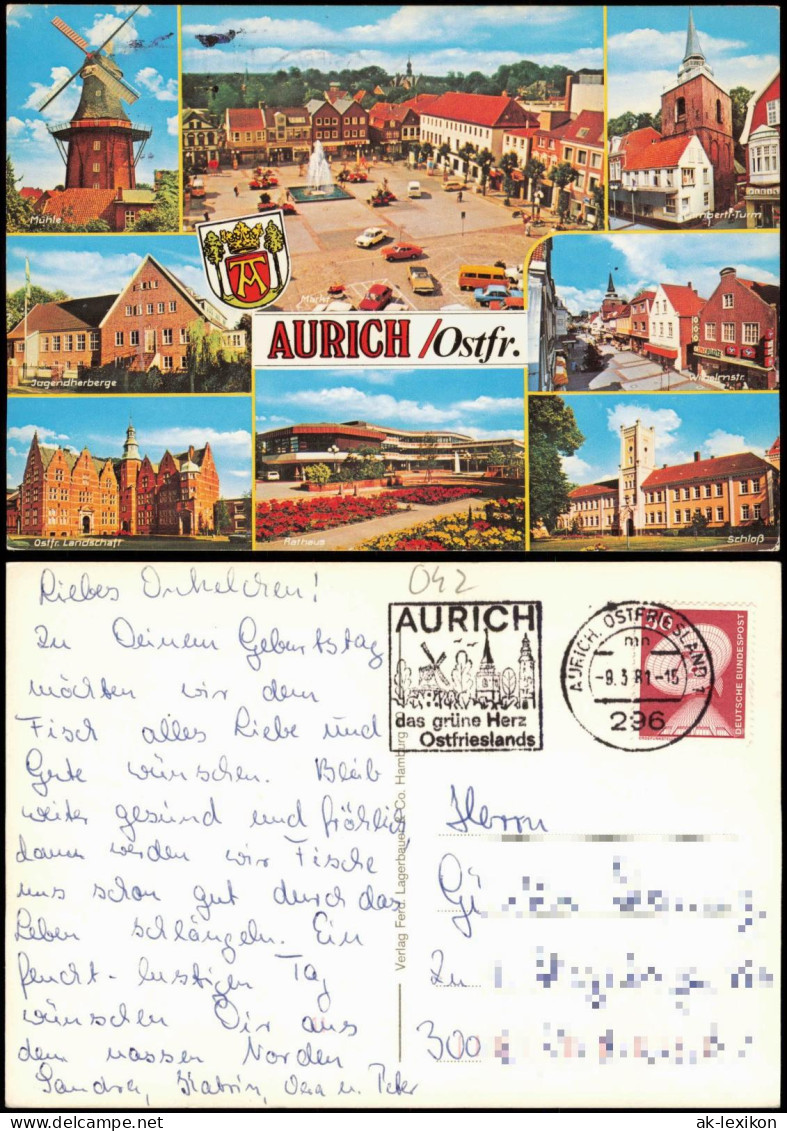 Mühle
Markt
Lamberti-Turm
Jugendherberge
AURICH / Ostfr.
Wilhelmstr.
Ostfr. Landschaft
Rathaus
Schloß
Liebes Onkelchen!
Zu Deinem Geburtstag
möchten wir dem
Fisch alles Liebe und
Gute wünschen. Bleib
weiter gesund und fröhlich,
dann werden wir Fische
uns schon gut durch das
Leben schlängeln. Ein
feucht-lustigen Tag
wünschen Dir aus
dem nassen Norden
Sandra, Katrin, Vera u. Peter
Verlag Ferd. Lagerbauer & Co. Hamburg
042
AURICH
das grüne Herz
Ostfrieslands
AURICH, OSTFRIESLAND 1
mn
-9.3.81-15
296
DEUTSCHE BUNDESPOST
Herrn
300
www.delcampe.net
ak-lexikon